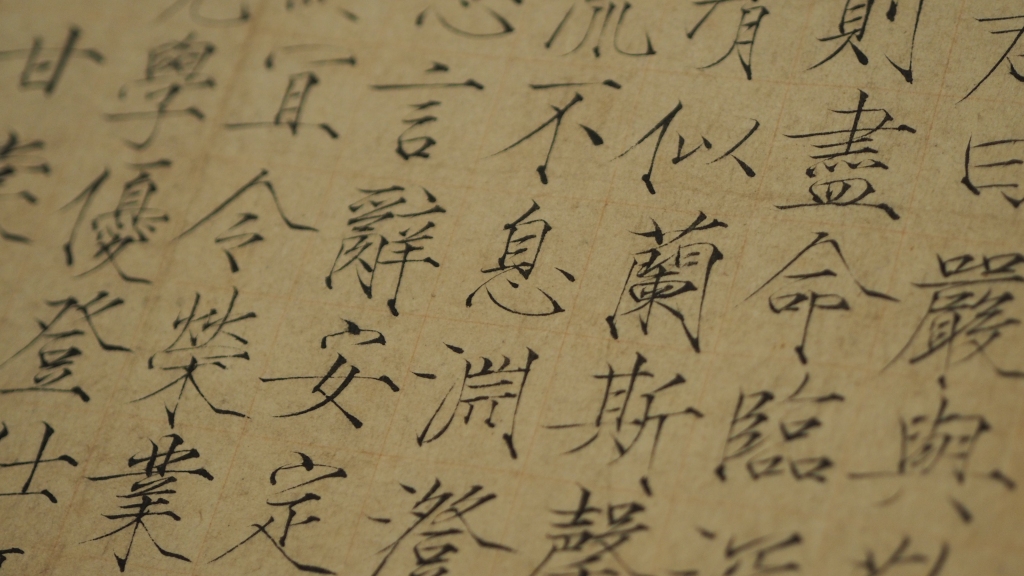 君曰嚴與敬
則盡命臨深
凊似蘭斯馨
流不息淵澄
思言辭安定
宜令榮業
學優登仕
甘棠